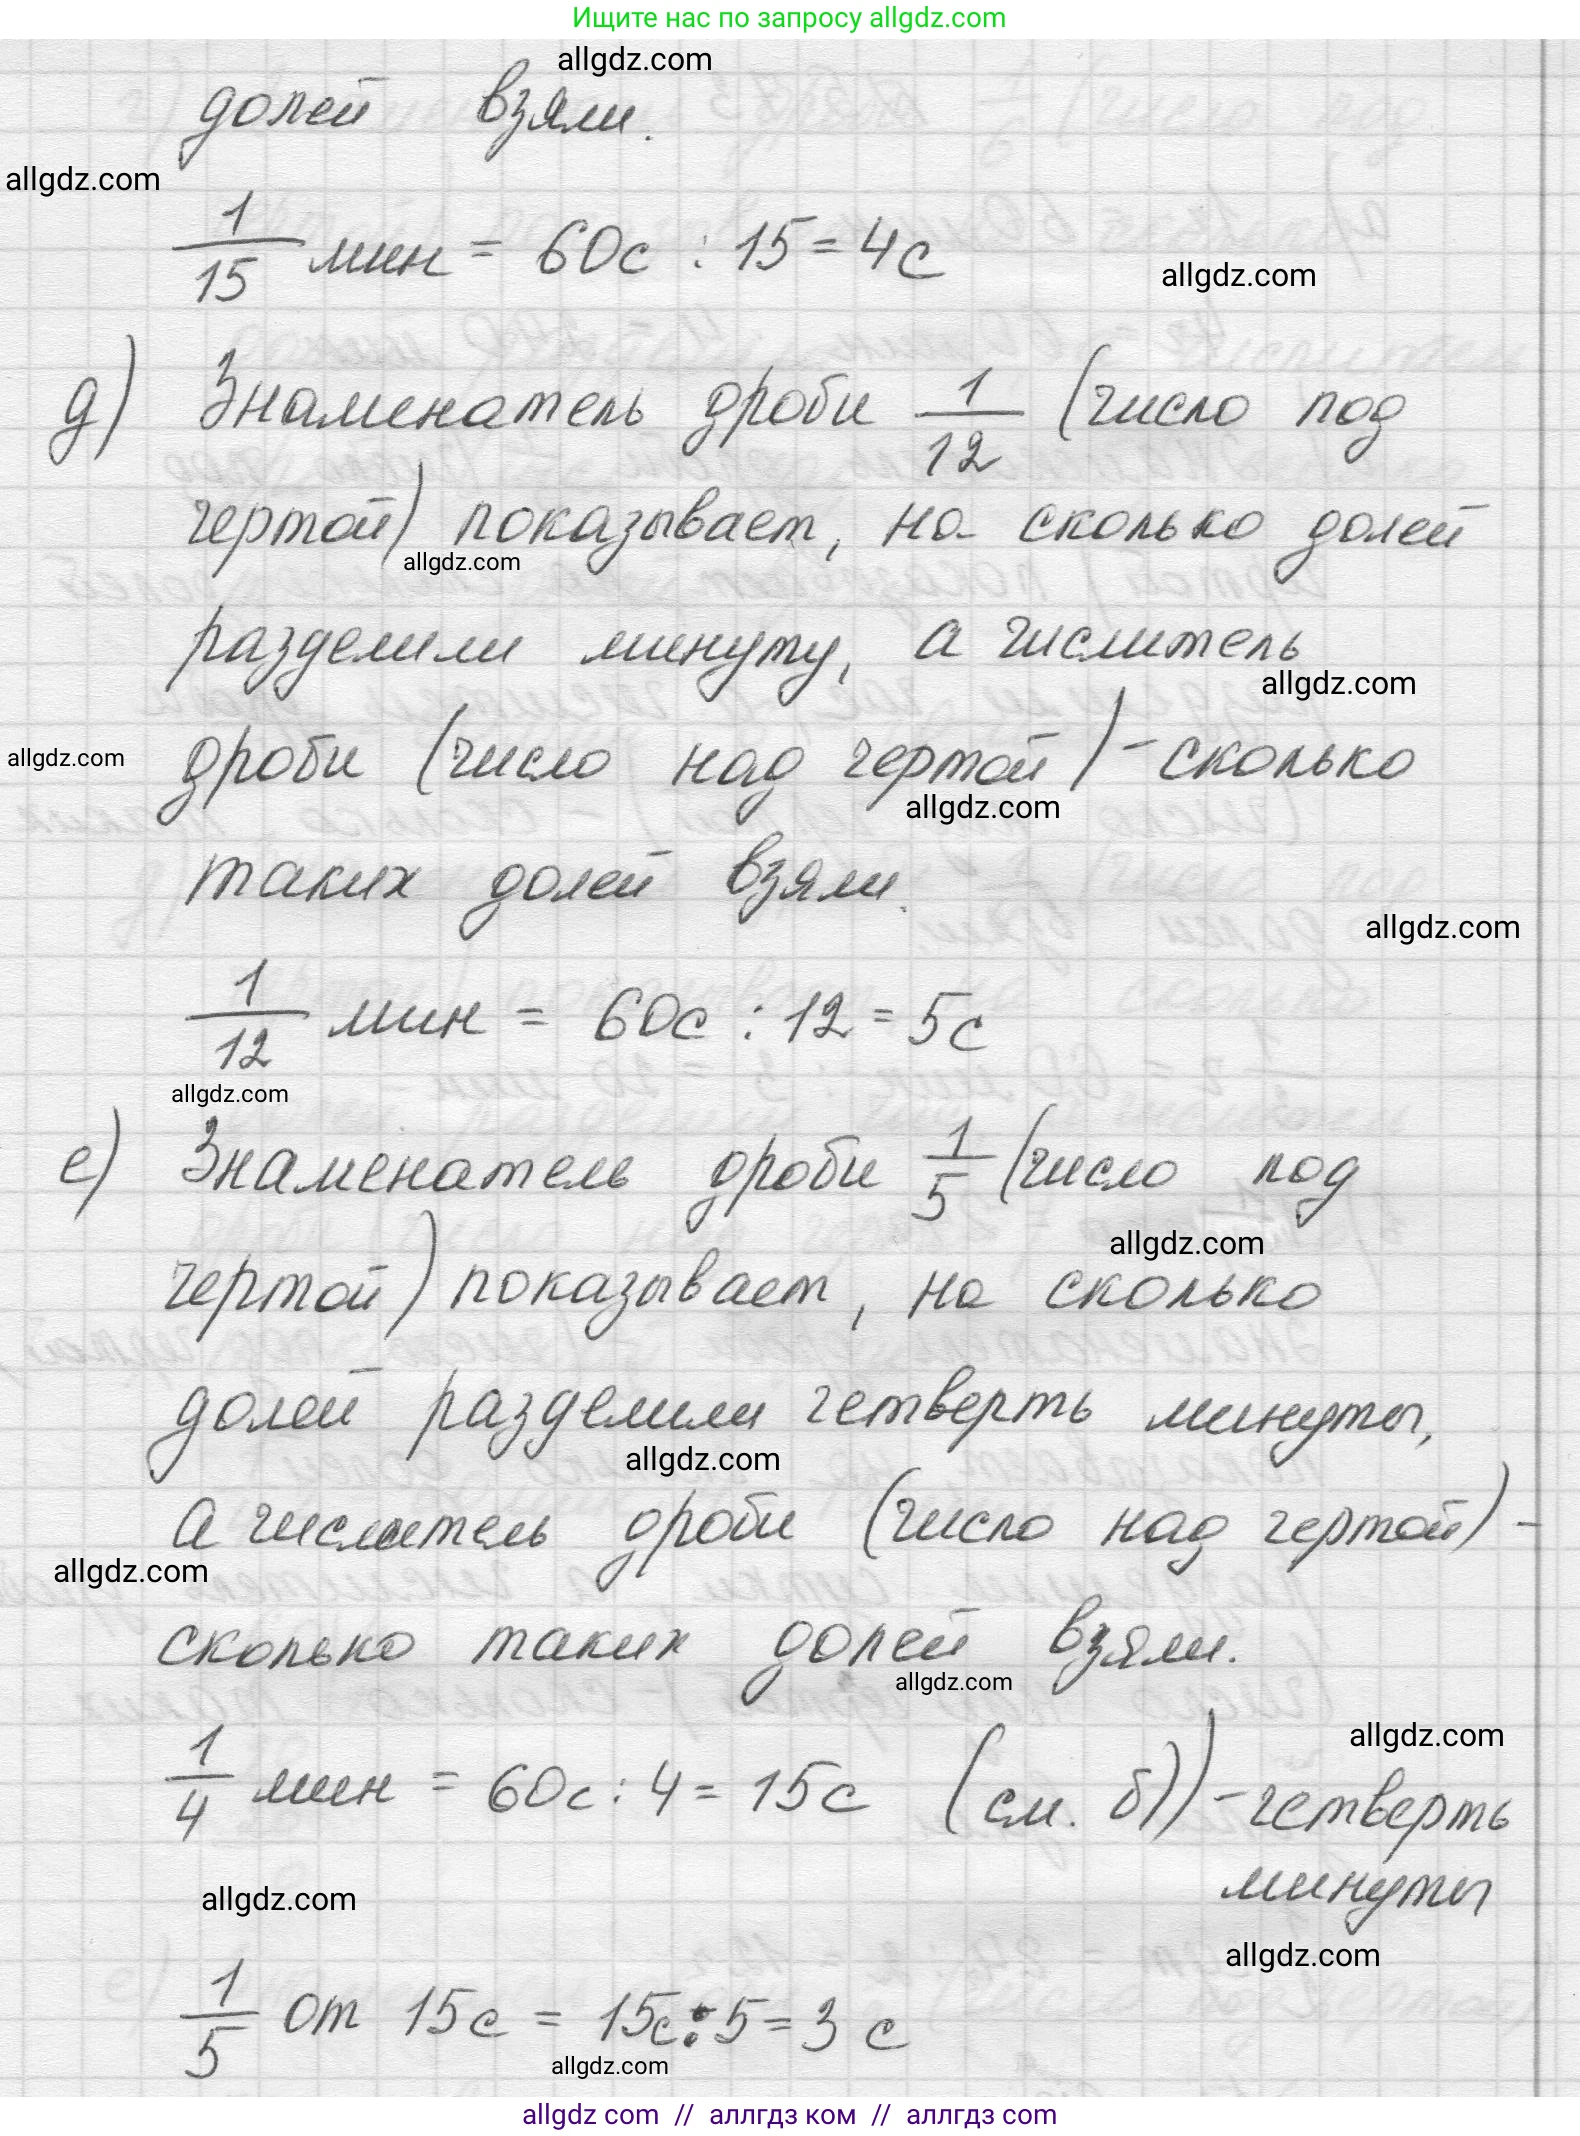 Ищите нас по запросу allgdz.com
allgdz.com
долей взяли.
allgdz.com
1/15 мин = 60с : 15 = 4с
allgdz.com
д) Знаменатель дроби 1/12 (число под
чертой) показывает, на сколько долей
allgdz.com
разделили минуту, а числитель
allgdz.com
дроби (число над чертой) - сколько
allgdz.com
allgdz.com
таких долей взяли.
allgdz.com
1/12 мин = 60с : 12 = 5с
allgdz.com
е) Знаменатель дроби 1/5 (число под
allgdz.com
чертой) показывает, на сколько
долей разделили четверть минуты,
allgdz.com
а числитель дроби (число над чертой) -
allgdz.com
сколько таких долей взяли.
allgdz.com
allgdz.com
1/4 мин = 60с : 4 = 15с (см. б)) - четверть
минуты
allgdz.com
allgdz.com
1/5 от 15с = 15с : 5 = 3 с
allgdz.com
allgdz com // аллгдз ком // аллгдз com